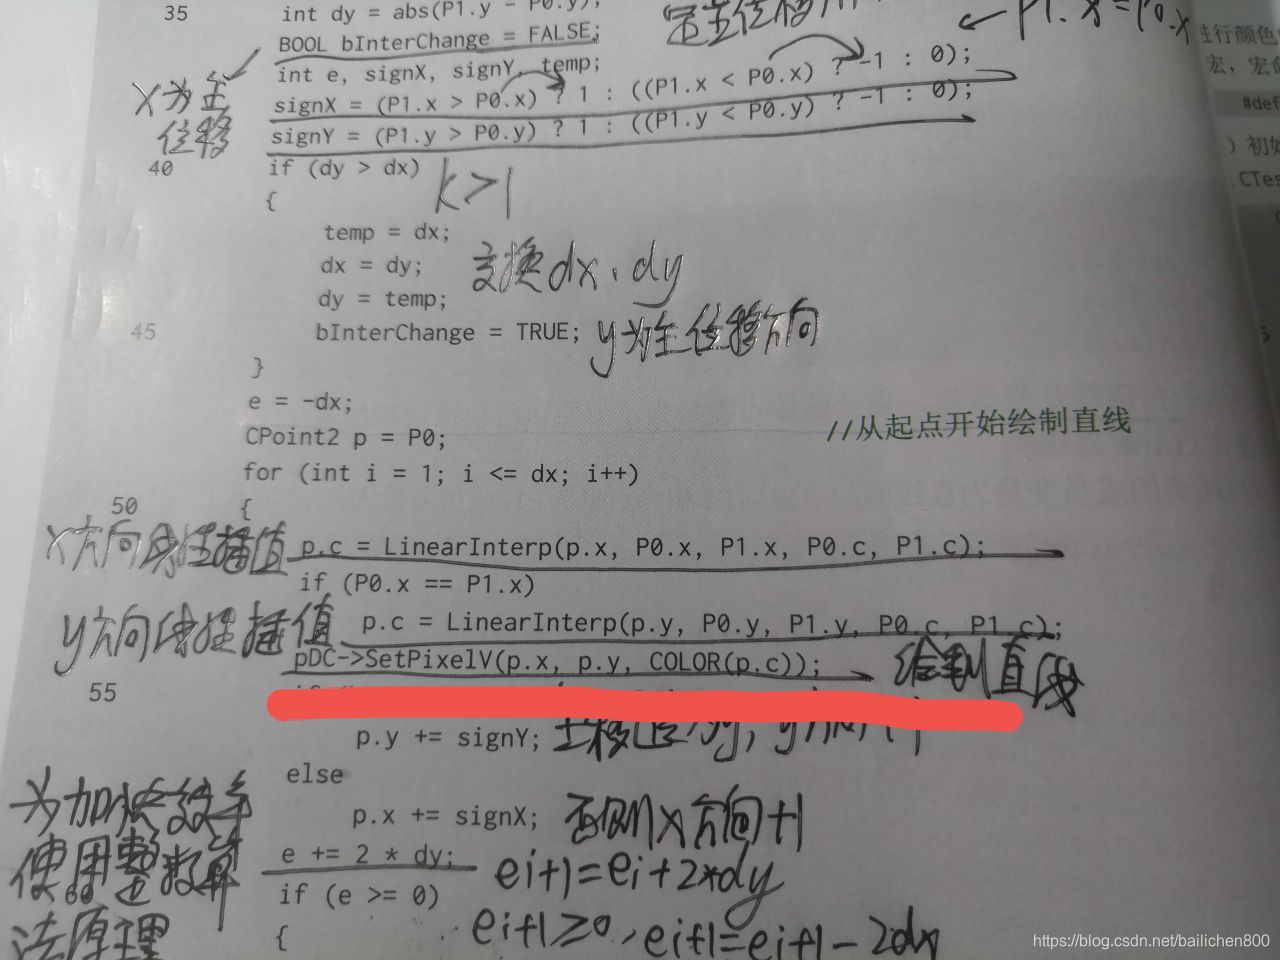 35 int dy = abs(P1.y - P0.y);
P1.x = P0.x
BOOL bInterChange = FALSE;
int e, signX, signY, temp;
进行颜色
宏，宏
x为主
位移
signX = (P1.x > P0.x) ? 1 : ((P1.x < P0.x) ? -1 : 0);
#def
signY = (P1.y > P0.y) ? 1 : ((P1.y < P0.y) ? -1 : 0);
）初始
40 if (dy > dx) k>1
.CTes
{
temp = dx;
dx = dy; 交换dx、dy
dy = temp;
45 bInterChange = TRUE; y为主位移方向
}
e = -dx;
CPoint2 p = P0; //从起点开始绘制直线
for (int i = 1; i <= dx; i++)
50 {
x方向线性插值 p.c = LinearInterp(p.x, P0.x, P1.x, P0.c, P1.c);
if (P0.x == P1.x)
y方向线性插值 p.c = LinearInterp(p.y, P0.y, P1.y, P0.c, P1.c);
pDC->SetPixelV(p.x, p.y, COLOR(p.c)); 绘制直线
55
p.y += signY;
else
p.x += signX; 否则x方向+1
为加快效率
使用整数算
法原理
60
e += 2 * dy; ei+1=ei+2*dy
if (e >= 0) ei+1≥0,ei+1=ei+1-2dx
{
https://blog.csdn.net/bailichen800